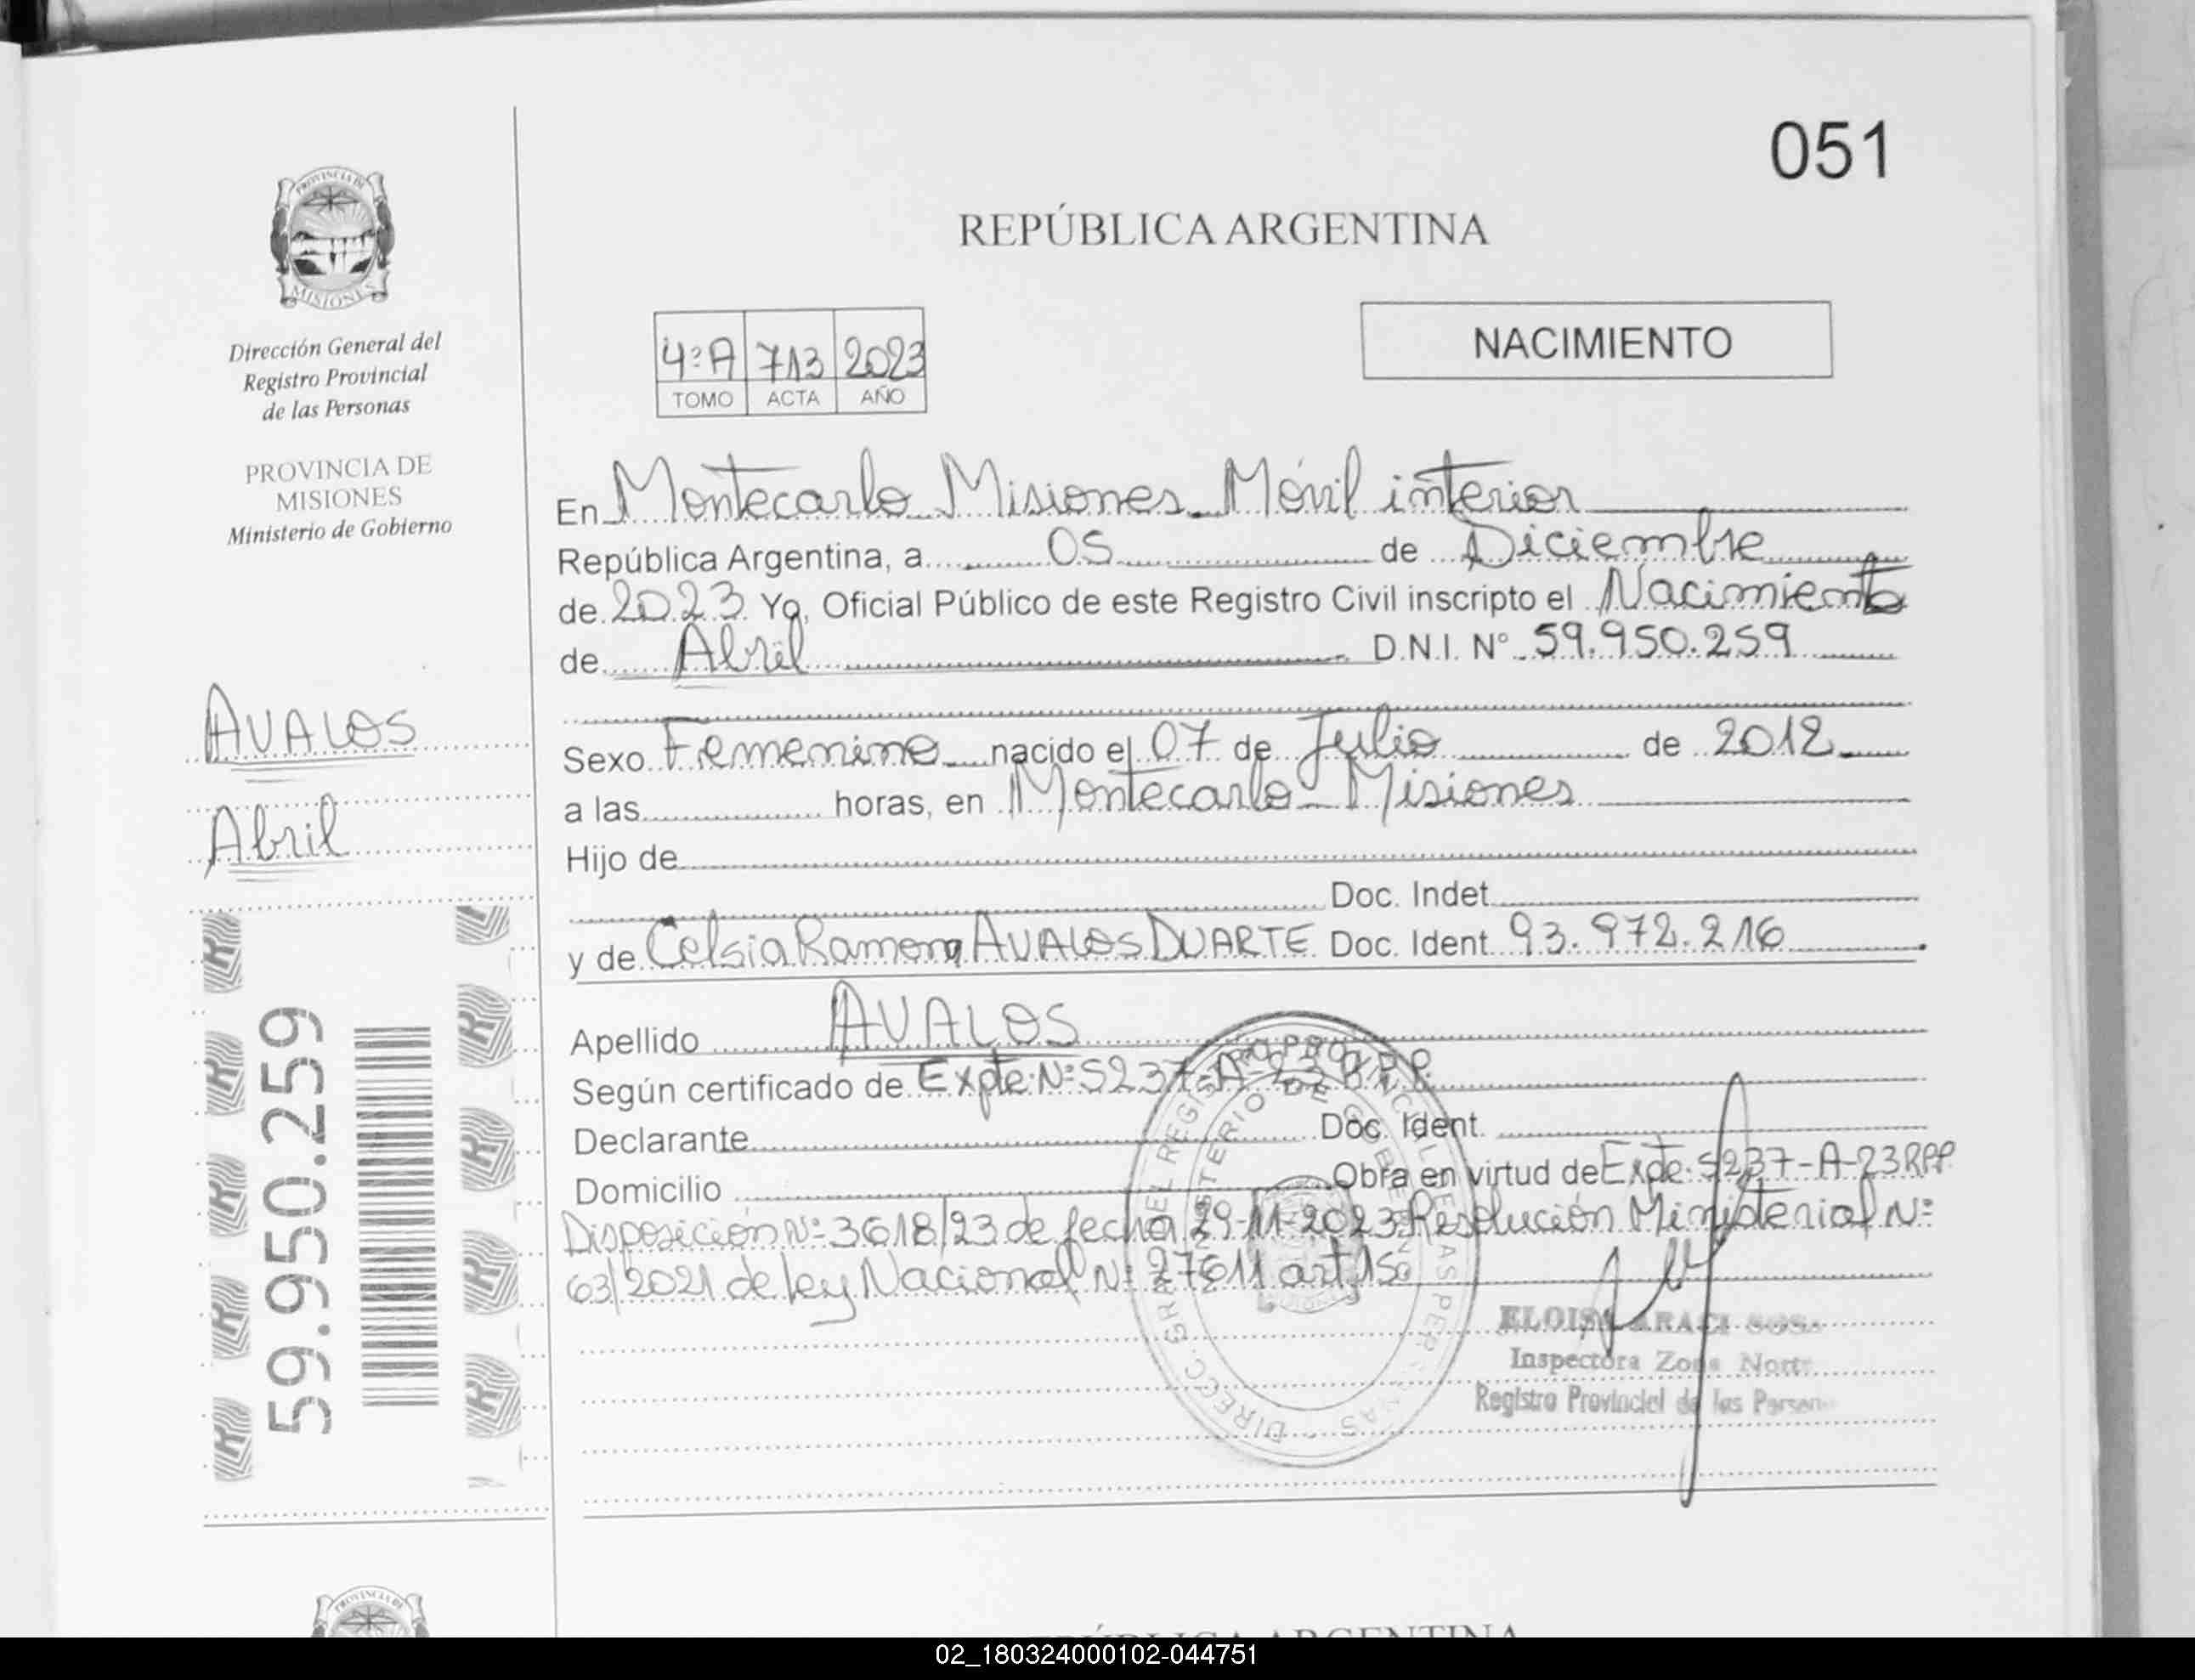 051
REPÚBLICA ARGENTINA
PROVINCIA DE
MISIONES
Dirección General del
Registro Provincial
de las Personas
PROVINCIA DE
MISIONES
Ministerio de Gobierno
4ºA 713 2023
TOMO ACTA AÑO
NACIMIENTO
En Montecarlo Misiones Móvil interior
República Argentina, a 05 de Diciembre
de 2023 Yo, Oficial Público de este Registro Civil inscripto el Nacimiento
de Abril D.N.I. Nº 59.950.259
AVALOS
Abril
59.950.259
Sexo Femenino nacido el 07 de Julio de 2012
a las horas, en Montecarlo - Misiones
Hijo de
Doc. Indet.
y de Celsia Ramona AVALOS DUARTE Doc. Ident. 93.972.216
Apellido AVALOS
Según certificado de Expte Nº 5237-A-23 R.P.P.
Declarante Doc. Ident.
Domicilio Obra en virtud de Expte: 5237-A-23RPP
Disposición Nº 3618/23 de fecha 29-11-2023 Resolución Ministerial Nº
63/2021 de ley Nacional Nº 27611 art 15º
Inspectora Zona Norte
Registro Provincial de las Person
REPÚBLICA ARGENTINA
02_180324000102-044751